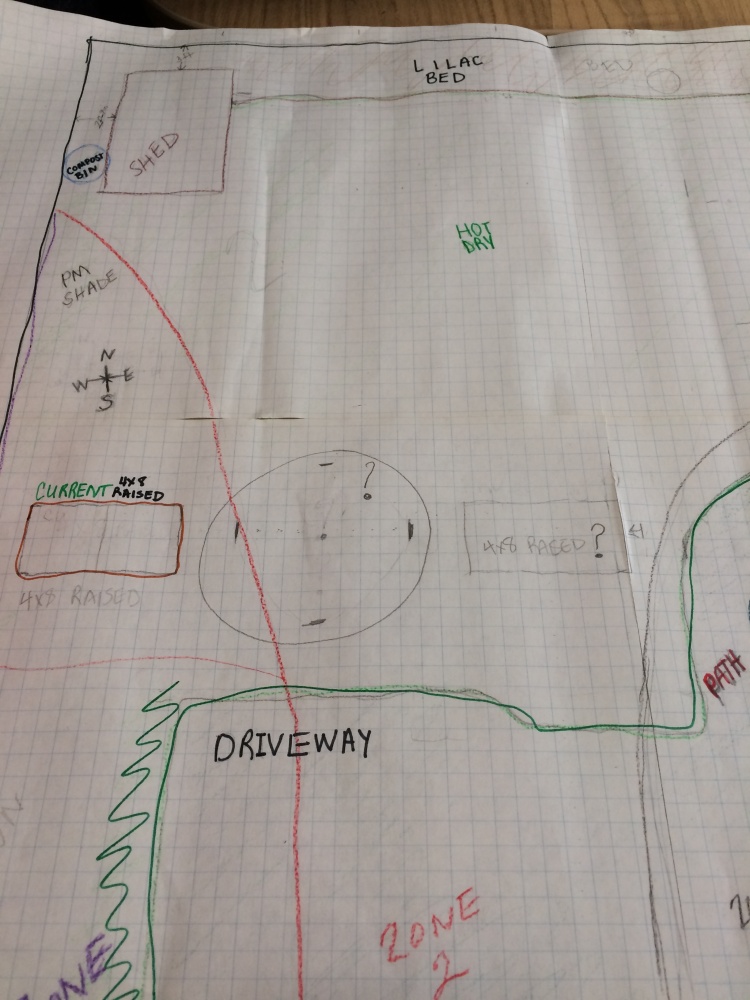 LILAC
BED
BED
SHED
COMPOST
BIN
HOT
DRY
PM
SHADE
N
W E
S
CURRENT 4x8
RAISED
?
4x8 RAISED?
4x8 RAISED
PATH
DRIVEWAY
ZONE
2
ZONE